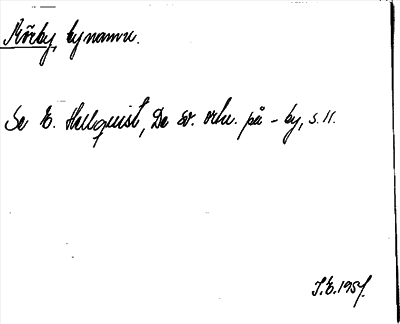 Rörby, bynamn.
Se E. Hellquist, De sv. ortn. på -by, s. 11.
I.E. 1957.